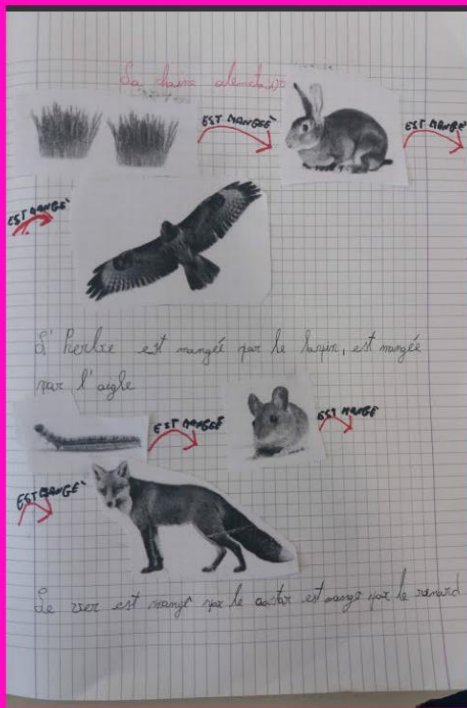 La haine alimentaire
EST MANGÉE
EST MANGÉ
EST MANGÉ
L'herbe est mangée par le lapin, est mangée
par l'aigle
EST MANGÉ
EST MANGÉ
EST MANGÉ
Le ver est mangé par le castor est mangé par le renard